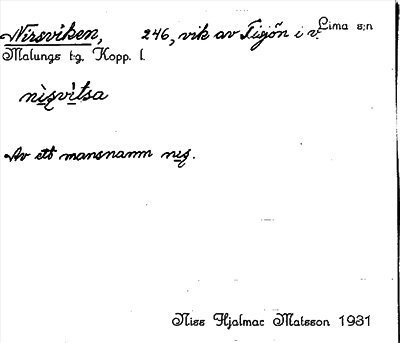 Nirsviken, 246, vik av Fisjön i v. Lima s:n
Malungs t-g, Kopp. l.
nìs̱vìtsa
Av ett mansnamn nis̱.
Niss Hjalmar Matsson 1931